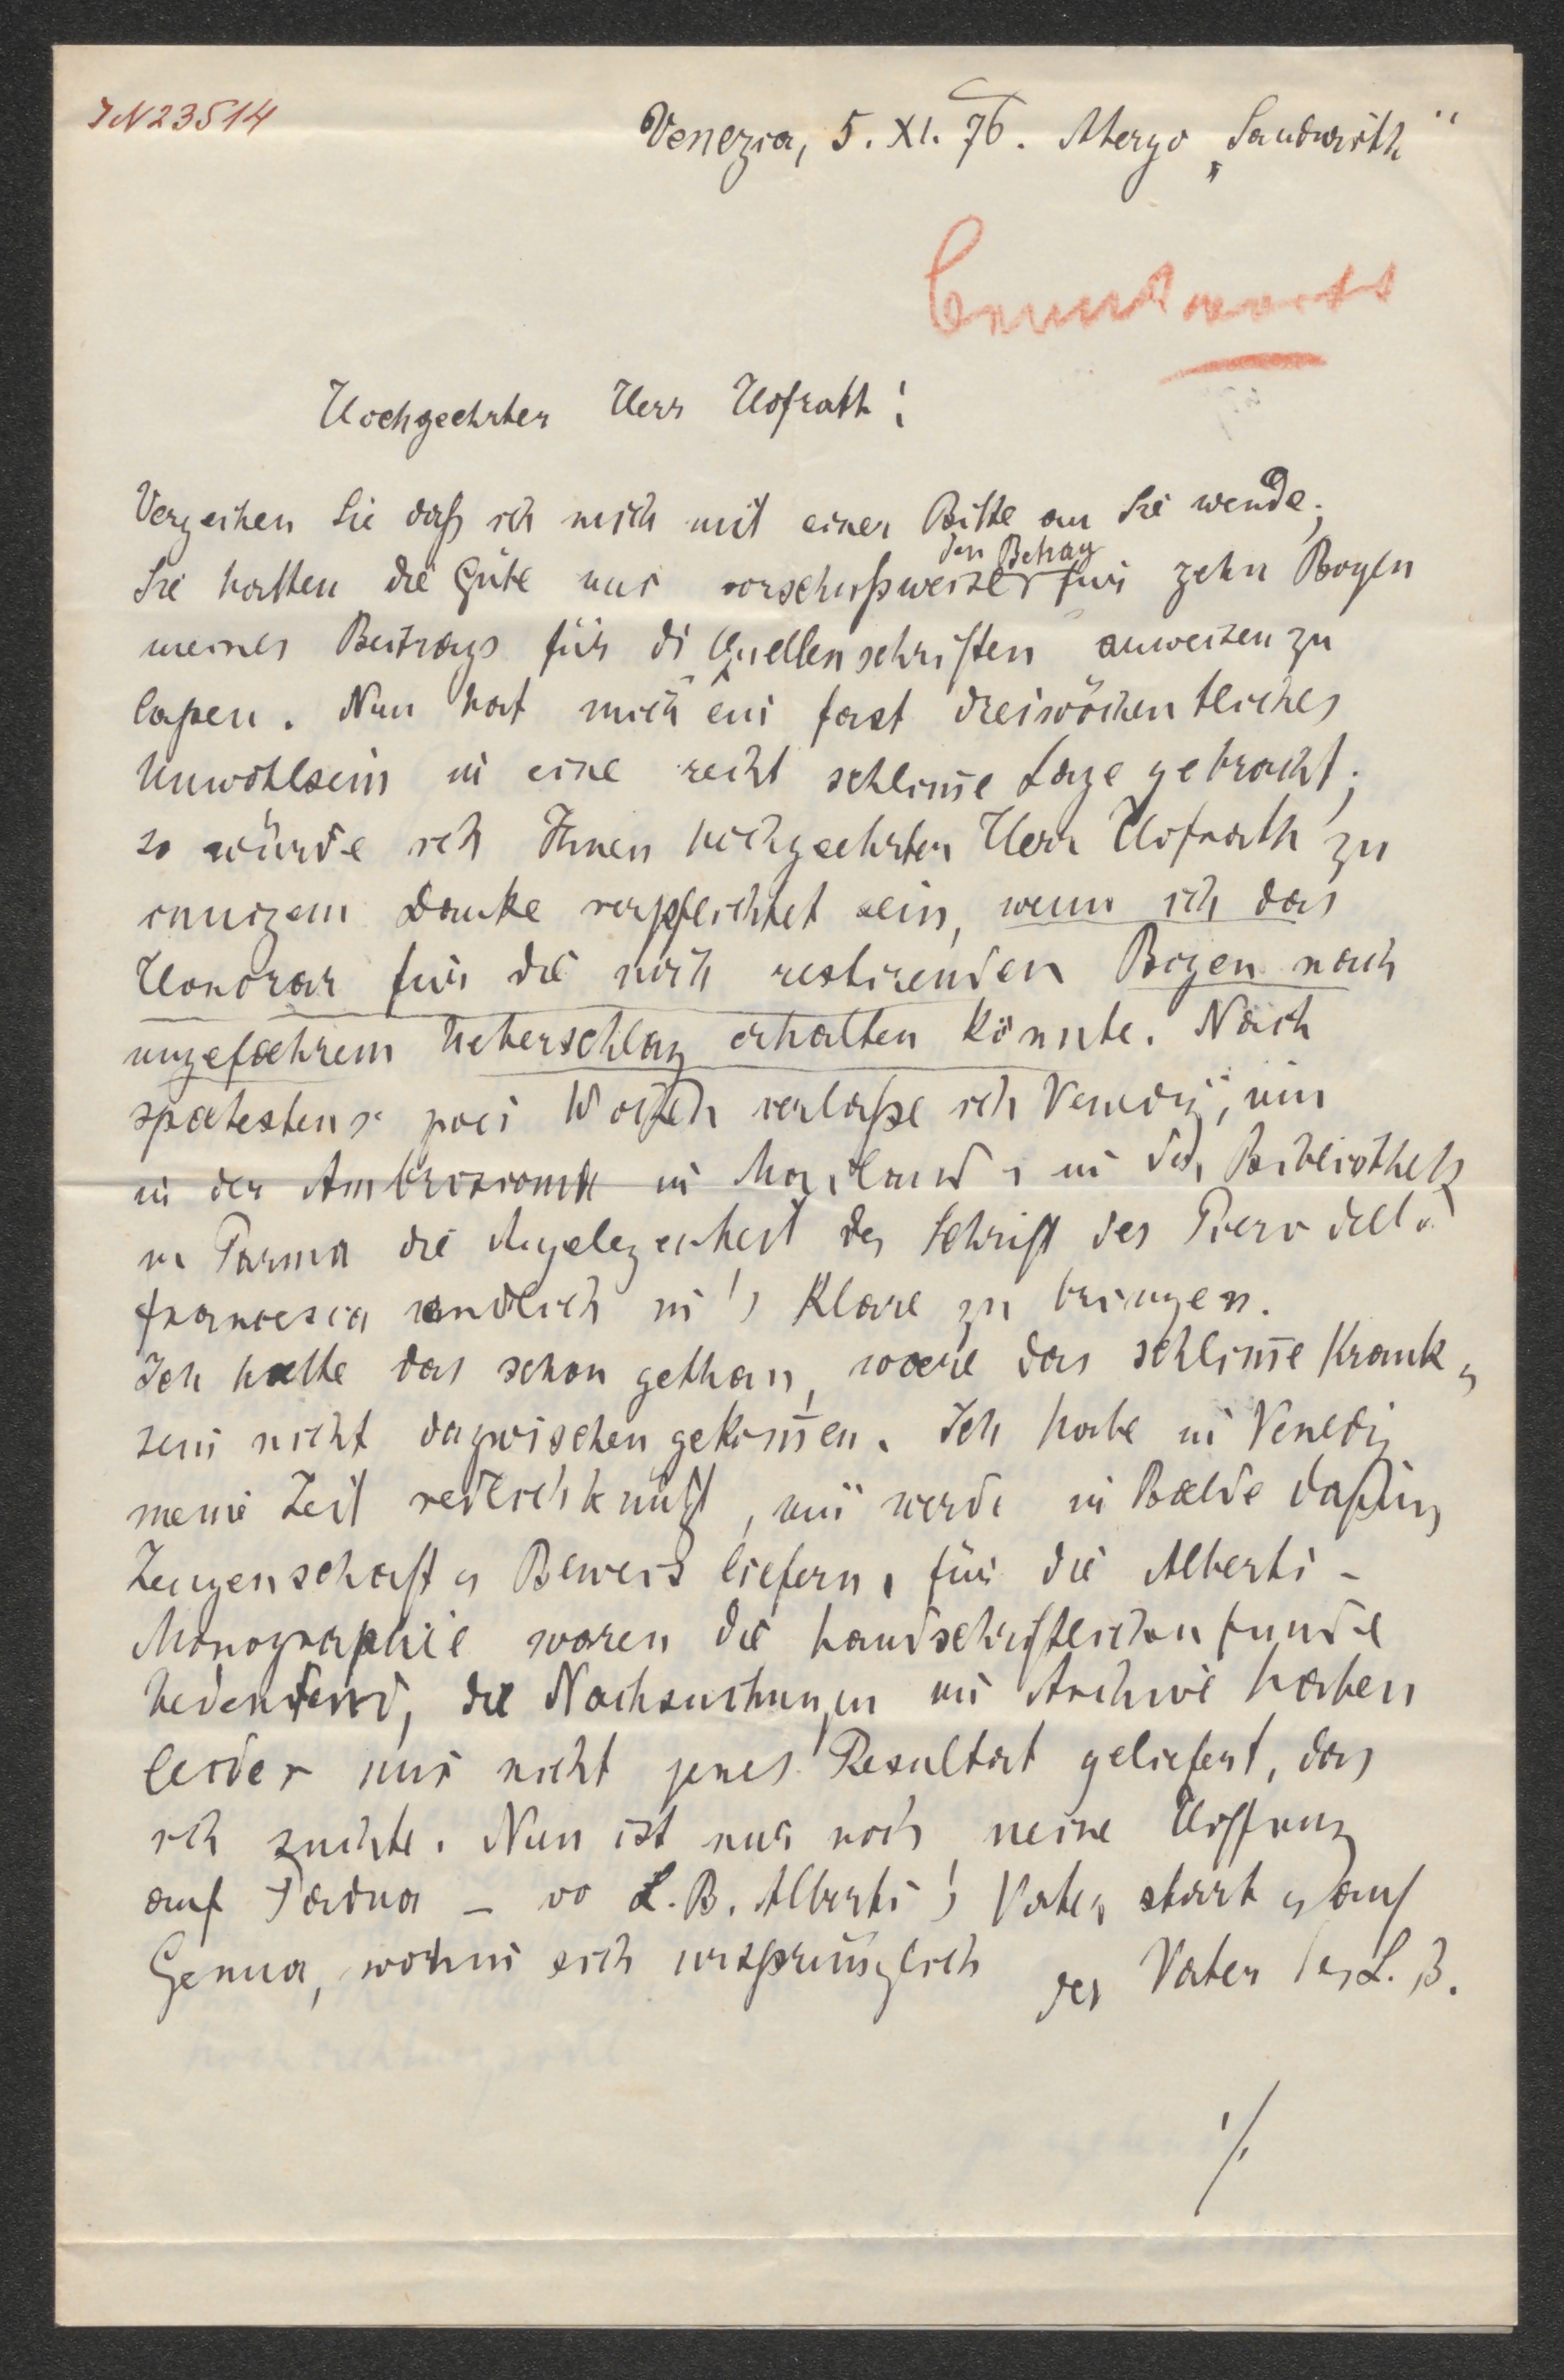 IN 23514
Venezia, 5. XI. 76. Albergo „Sandwirth"
Hochgeehrter Herr Hofrath!
Verzeihen Sie daß ich mich mit einer Bitte an Sie wende;
den Betrag
Sie hatten die Güte mir vorschußweise für zehn Bogen
meines Beitrags für di Quellenschriften anweisen zu
laßen. Nun hat mich ein fast dreiwöchentliches
Unwohlsein in eine recht schlim̅e Lage gebracht;
so würde ich Ihnen hochgeehrter Herr Hofrath zu
innigem Danke verpflichtet sein, wenn ich das
Honorar für die noch restirenden Bogen nach
ungefaehrem Ueberschlag erhalten könnte. Nach
spaetestens zwei Wochen verlaße ich Venedig, um
in der Ambrosiana in Mailand u in der Bibliothek
in Parma die Angelegenheit der Schrift des Piero della
Francesca endlich in's Klare zu bringen.
Ich haette das schon gethan, waere das schlim̅e Krank-
sein nicht dazwischen gekom̅en. Ich habe in Venedig
meine Zeit redlich benützt, un̅ werde in Baelde dafür
Zeugenschaft u Beweis liefern, für die Alberti-
Monographie waren die handschriftlichen Funde
bedeutend, die Nachsuchungen im Archive haben
leider mir nicht jenes Resultat geliefert, das
ich suchte. Nun ist nur noch meine Hoffnung
auf Padua – wo L. B. Alberti's Vater starb u auf
Genua, wohin sich ursprünglich der Vater des L. B.
./.